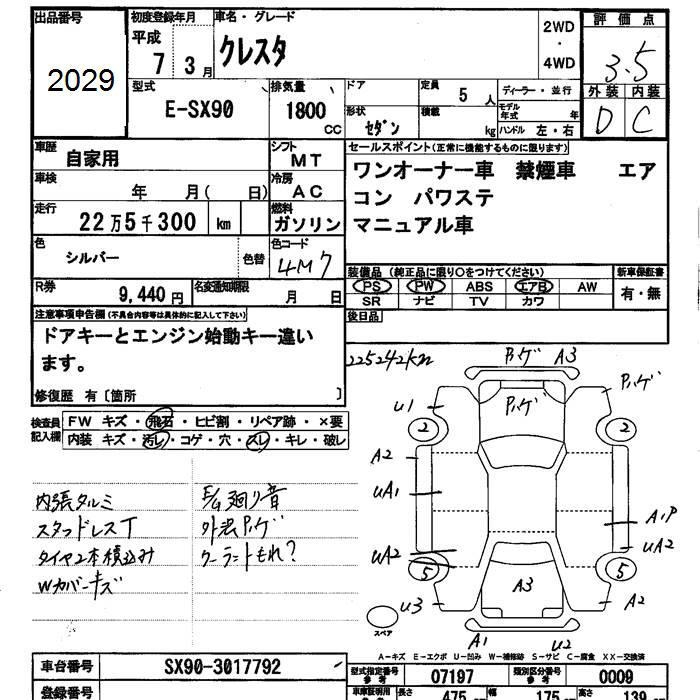 出品番号
2029
初度登録年月
平成
7 3月
車名・グレード
クレスタ
2WD
・
4WD
評価点
3.5
外装 内装
D C
型式
E-SX90
排気量
1800
CC
ドア
形状
セダン
定員
5 人
積載
kg
ディーラー・並行
モデル
年式 年
ハンドル 左・右
車歴
自家用
シフト
MT
車検
年 月( 日)
冷房
AC
走行
22万5千300 km
燃料
ガソリン
色
シルバー
色替
色コード
4M7
R券
9,440円
名変通知期限
月 日
セールスポイント(正常に機能するものに限ります)
ワンオーナー車 禁煙車 エア
コン パワステ
マニュアル車
装備品(純正品に限り○をつけてください)
PS PW ABS エアB AW
SR ナビ TV カワ
新車保証書
有・無
後日品
注意事項申告欄(不具合内容等は具体的に記入して下さい)
ドアキーとエンジン始動キー違い
ます。
修復歴 有〔箇所 〕
検査員
記入欄
FW キズ・飛石・ヒビ割・リペア跡・×要
内装 キズ・汚レ・コゲ・穴・スレ・キレ・破レ
内張タルミ
スタッドレスT
タイヤ2本積込み
Wカバーキズ
E/G廻り音
外装ハゲ
クーラントもれ?
225242km
ハゲ A3
ハゲ
ハゲ
U1
2
2
A2
UA1
A1P
UA2
UA2
5
5
A3
U3
A2
スペア
A1
U2
A-キズ E-エクボ U-凹み W-補修跡 S-サビ C-腐食 XX-交換済
車台番号
SX90-3017792
登録番号
型式指定番号
参考
07197
類別区分番号
参考
0009
車庫証明用
長さ
475
幅
175
高さ
139